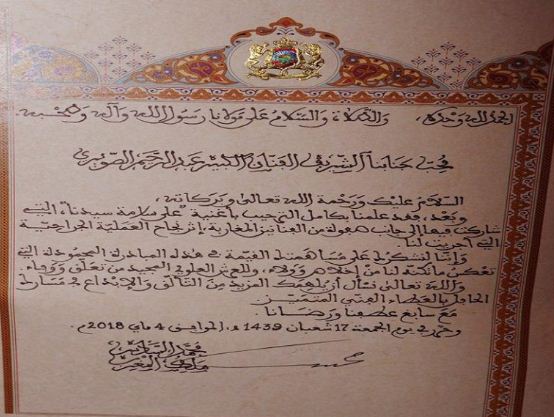 الحمد لله وحده، والصلاة والسلام على مولانا رسول الله وآله وصحبه.
محب جنابنا الشريف الفنان الكبير عبد الرحيم الصويري
السلام عليك ورحمة الله تعالى وبركاته،
وبعد، فقد علمنا بكامل الترحيب بأغنية "على سلامة سيدنا"، التي
شاركت فيها إلى جانب مجموعة من الفنانين المغاربة، إثر نجاح العملية الجراحية
التي أجريت لنا.
وإننا لنشكرك على مساهمتك القيمة في هذه المبادرة المحمودة التي
تعكس ما تكنه لنا من إخلاص وولاء، وللعرش العلوي المجيد من تعلق ووفاء.
والله تعالى نسأل أن يلهمك المزيد من التألق والإبداع في مسارك
الحافل بالعطاء الفني المتميز.
مع سابغ عطفنا ورضانا.
وحرر في يوم الجمعة 17 شعبان 1439 هـ، الموافق 4 ماي 2018م.
محمد السادس
ملك المغرب